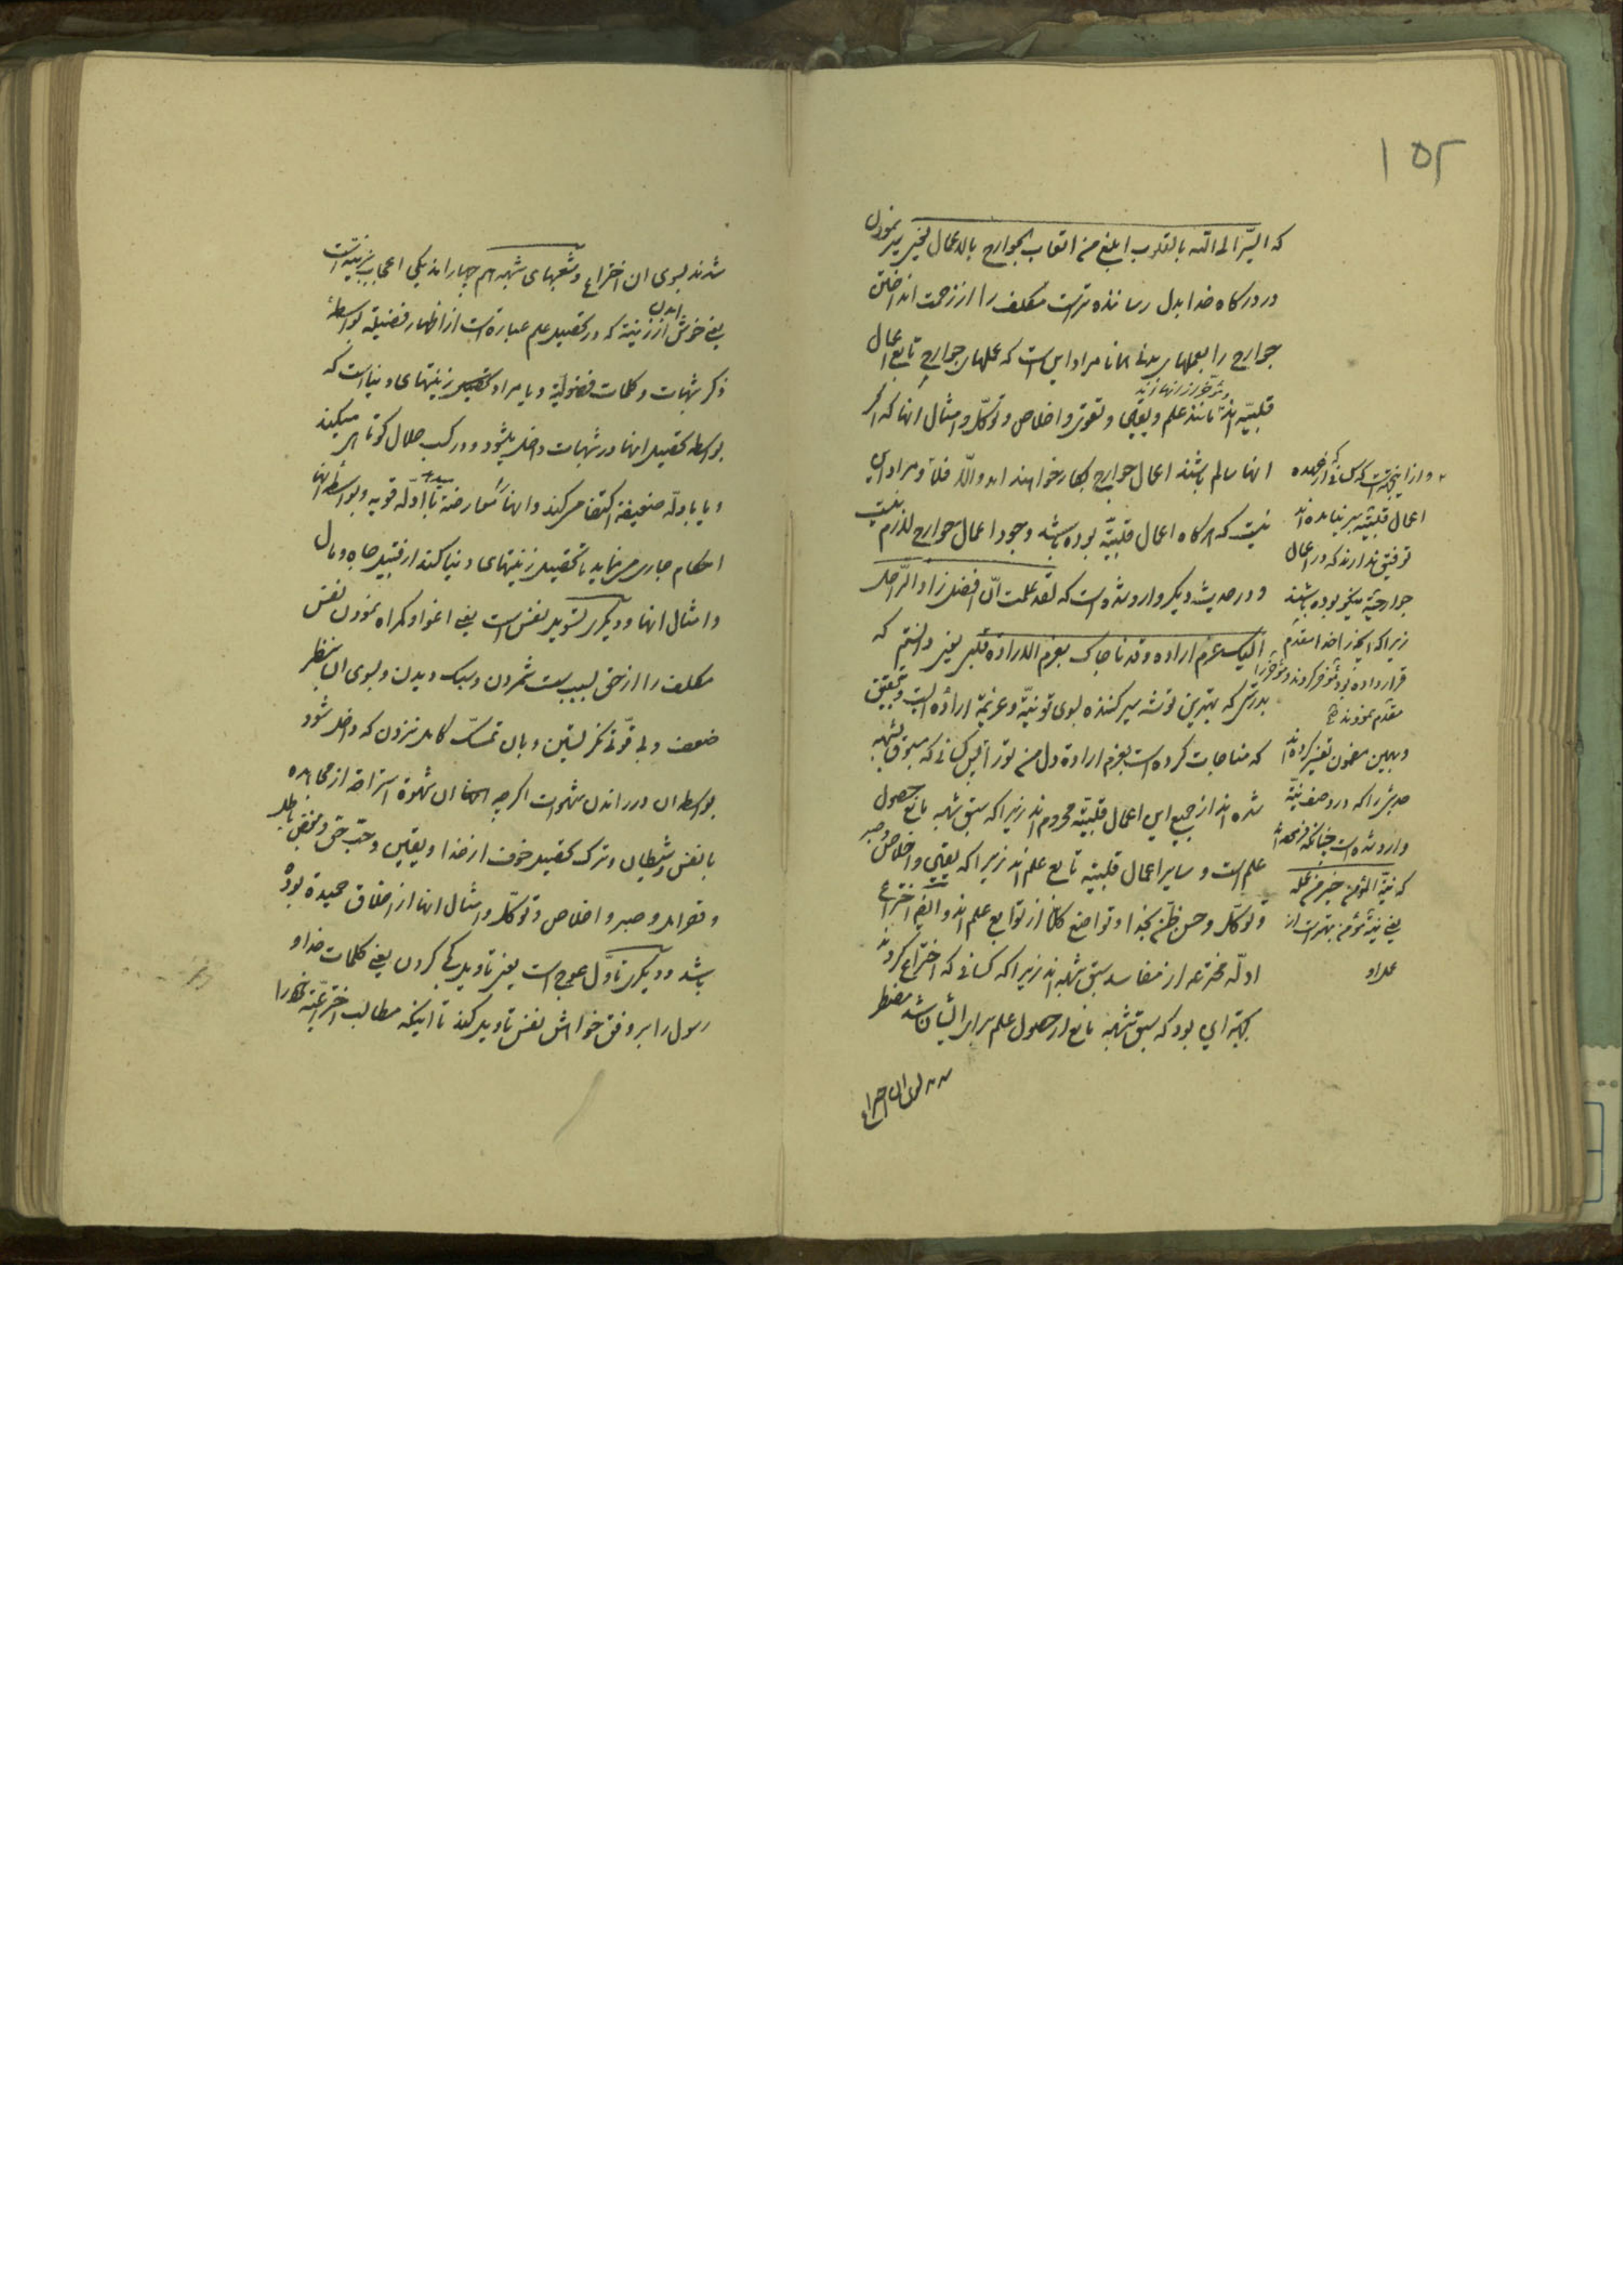 ۱۵۲
که السیر الی الله بالقلوب ابلغ من اتعاب الجوارح بالاعمال یعنی سیر نمودن
در درگاه خدا بدل رساننده‌تر است مکلف را از زحمت انداختن
جوارح را بعملهای بدنی همانا مراد این است که عملهای جوارح تابع اعمال
قلبیّه‌اند مانند علم و یقین و تقوی و اخلاص و توکّل و امثال انها که اگر
انها سالم باشند اعمال جوارح بکار خواهند امد والّا فلا و مراد این
نیست که هرگاه اعمال قلبیّه بوده باشد وجود اعمال جوارح لازم نیست
و در حدیث دیگر وارد شده است که لقد علمت انّ افضل زاد الرّاحل
الیک عزم اراده و قد ناجاک بعزم الاراده قلبی یعنی دانستم که
بدرستی که بهترین توشه سیر کننده بسوی تو نیّة و عزیمة اراده است و بتحقیق
که مناجات کرده است بعزم ارادة دل من تو را پس کسانی که مسبوق بشبهه
شده‌اند از جمیع این اعمال قلبیّه محروم‌اند زیرا که سبق شبهه مانع حصول
علم است و سایر اعمال قلبیّه تابع علم‌اند زیرا که یقین و اخلاص و صبر
و توکّل و حسن ظنّ بخدا و تواضع کلّا از توابع علم‌اند و ایضا اختراع
ادلّه مخترعه از مفاسد سبق شبهه‌اند زیرا که کسانی که اختراع کردند
بجهة این بود که سبق شبهه مانع از حصول علم برای ایشان شد مضطر
شدند بسوی ان اختراع
و از این جهت است که کسانی که از عهده
اعمال قلبیّه بر نیامده‌اند
توفیق ندارند که در اعمال
جوارحیّة نیز بوده باشند
زیرا که انچه را خدا مقدم
قرار داده بود مؤخر کردند و مؤخر را
مقدّم نمودند
و بهمین مضمون تفسیر کرده‌اند
حدیثی را که در وصف نیّة
وارد شده است چنانکه فرموده‌اند
که نیّة المؤمن خیر من عمله
یعنی نیّة مؤمن بهتر است از
عمل او
شدند بسوی ان اختراع و شعبهای شبهه هم چهارند یکی اعجاب بزینة است
یعنی خوش امدن از زینة که در تحصیل علم عبارة است از اظهار فضیلة بواسطهٔ
ذکر شبهات و کلمات فضولیّة و یا مراد تحصیل زینتهای دنیا است که
بواسطه تحصیل انها در شبهات داخل میشود و در کسب حلال کوتاهی میکند
و یا بادلّه ضعیفه اکتفا می‌کند و انها را معارضة با ادلّه قویه و بواسطه انها
احکام جاری می‌نماید تا تحصیل زینتهای دنیا کند از قبیل جاه و مال
و امثال انها و دیگری تسویل نفس است یعنی اغوا و گمراه نمودن نفس
مکلف را از حق بسبب سست شمردن و سبک دیدن و بسوی ان بنظر
ضعف و بی قوّتی نگریستن و بان تمسّک کامل نزدن که داخل شود
بواسطه ان در راندن شهوات اگرچه ان شهوة استراحة از مجاهده
با نفس و شیطان و ترک تحصیل خوف از خدا و یقین و حبّ حق و بغض باطل
و تقوی و صبر و اخلاص و توکّل و امثال انها از اخلاق حمیدة بوده
باشد و دیگری تاوّل عوج است یعنی تاویل کجی کردن یعنی کلمات خدا و
رسول را بر وفق خواهش نفس تاویل کند تا اینکه مطالب اختراعیّه خود را